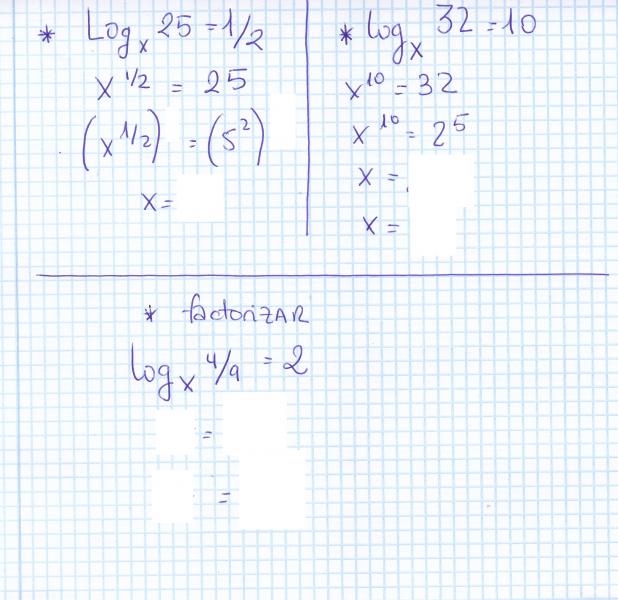 * Log_x 25 = 1/2
x^1/2 = 25
(x^1/2) = (5^2)
x =
* log_x 32 = 10
x^10 = 32
x^10 = 2^5
x =
x =
* factorizAR
log_x 4/9 = 2
=
=